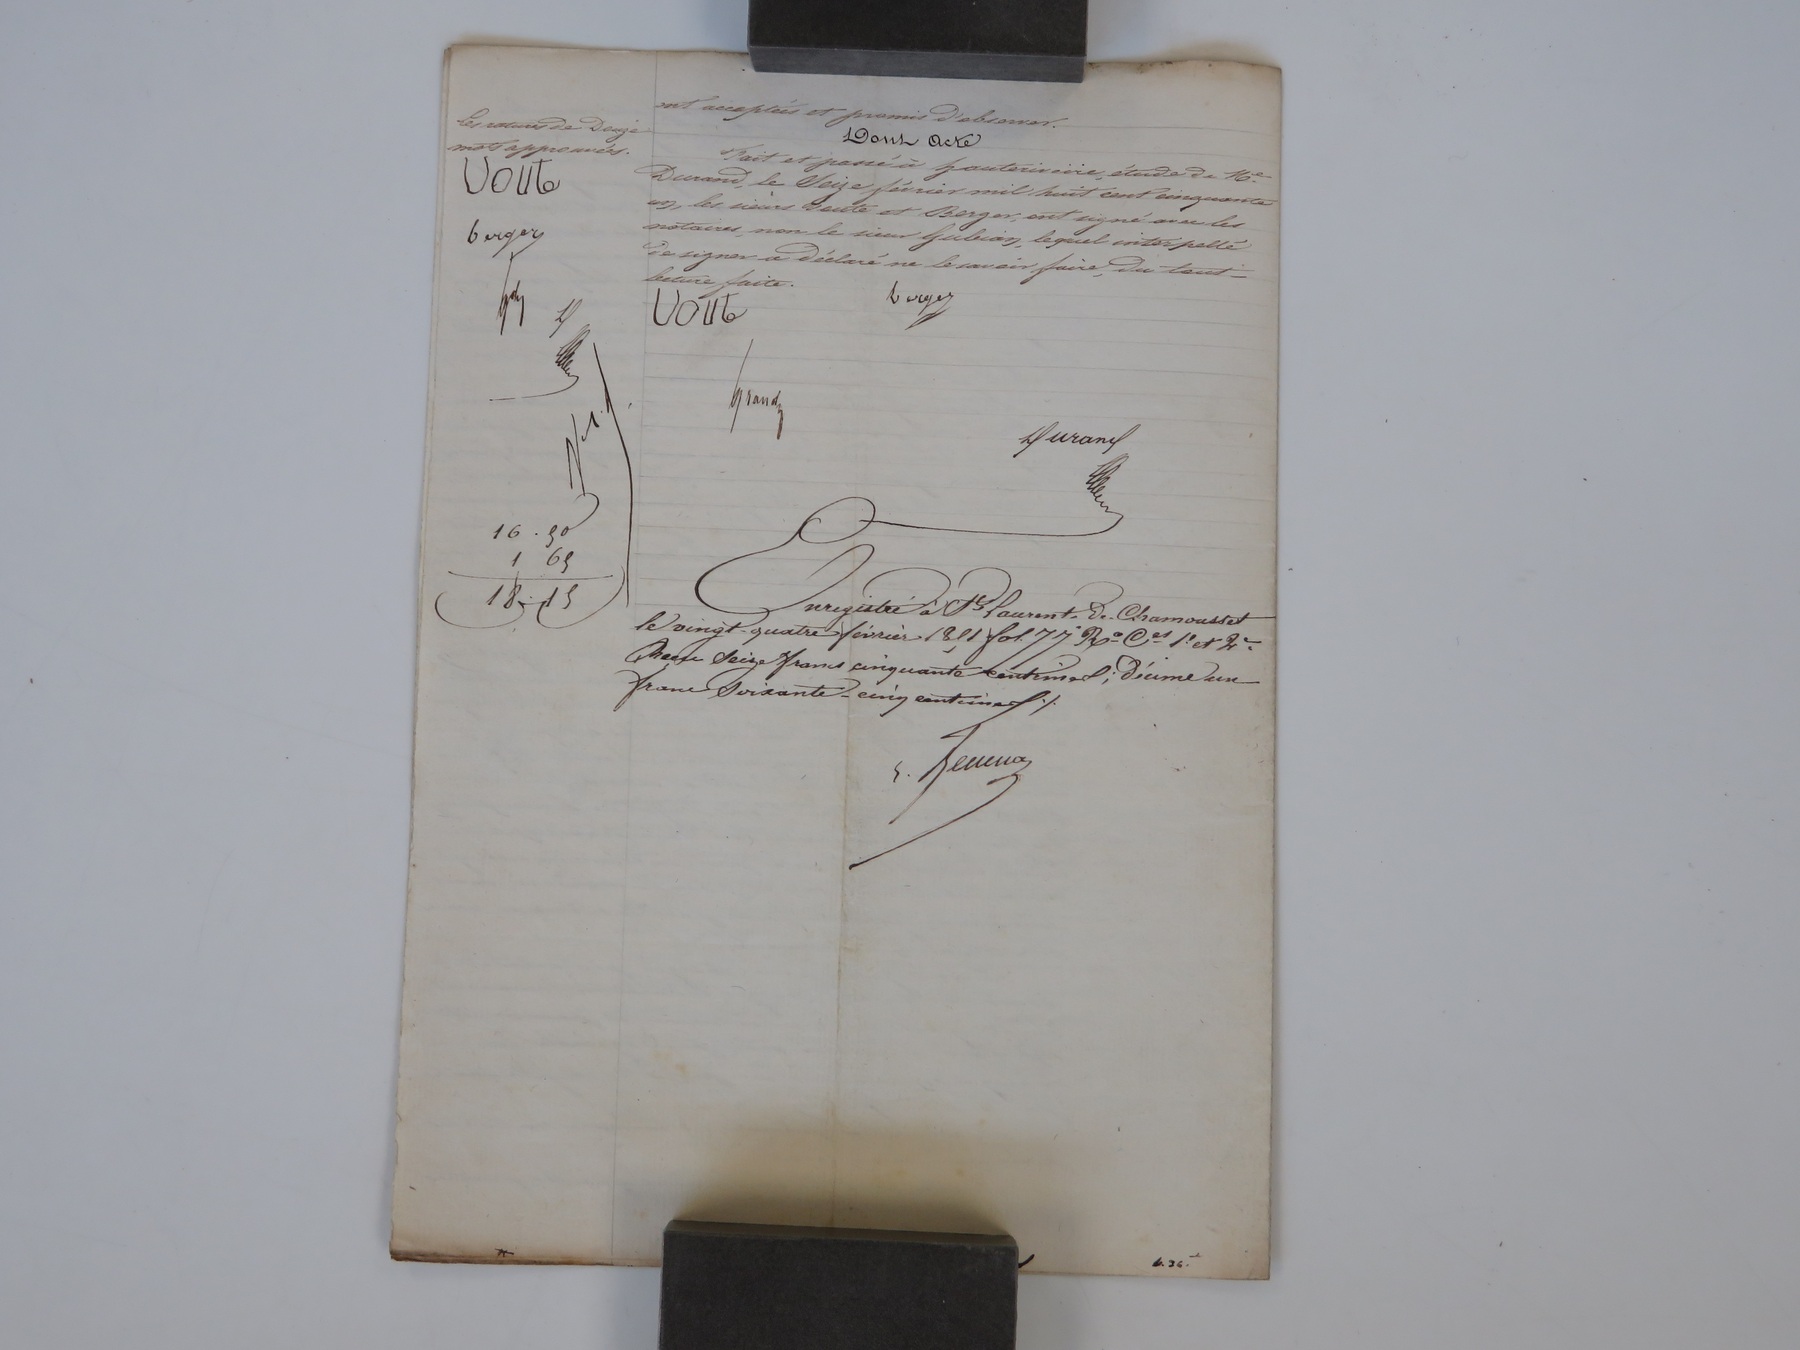 ont acceptées et promis d'observer.
Dont Acte
Fait et passé à hauterivoire, étude de Me
Durand, le Seize février mil huit cent cinquante
un, les sieurs Voute et Berger, ont signé avec les
notaires, non le sieur Gubian, lequel interpellé
de signer a déclaré ne le savoir faire, du tout
lecture faite.
Voute
berger
grand
Durand
Enregistré à St Laurent-de-Chamousset
le vingt-quatre février 1851 fol. 77 Ro Ces 1e et 2e
Reçu Seize francs cinquante centimes; Décime un
franc Soixante-cinq centimes ./.
Les ratures de Douze
mots approuvés.
Voute
berger
gd
D
16.50
1 65
18.15